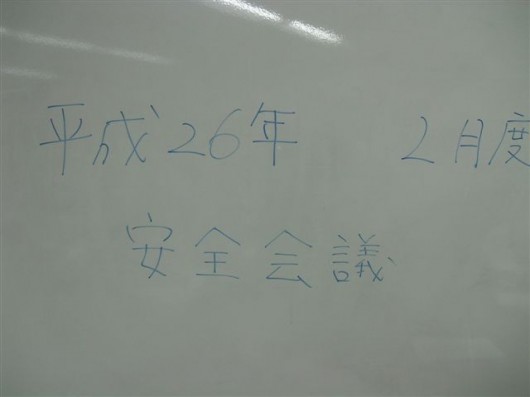 平成26年 2月度
安全会議